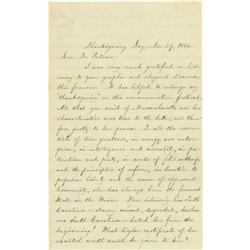 Thanksgiving Day, Nov. 29, 1860.
Dear Dr. Putnam:
I was very much gratified in listening
to your graphic and eloquent discourse
this forenoon. It has helped to enlarge my
"thanksgiving" on this commemorative festival.
All that you said of Massachusetts and her
characteristics was true to the letter, and therefore
justly to her praise. In all the essentials
of true greatness, in energy and enterprise,
in intelligence and morality, in patriotism
and piety, in works of philanthropy
and the principles of reform, in devotion to
popular liberty and the cause of oppressed
humanity, she has always been the foremost
State in the Union. How intensely has South
Carolina — slavery cursed, degraded, barbarous
South Carolina — hated her from the
beginning! What higher certificate of her
exalted worth could be given to her?